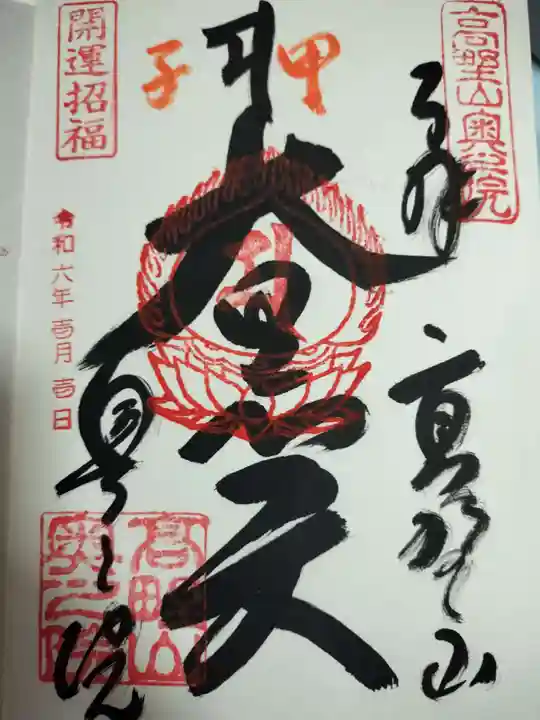 高野山奥之院
奉拝
高野山
甲子
大黒天
開運招福
令和六年壱月壱日
奥之院
高野山
奥之院